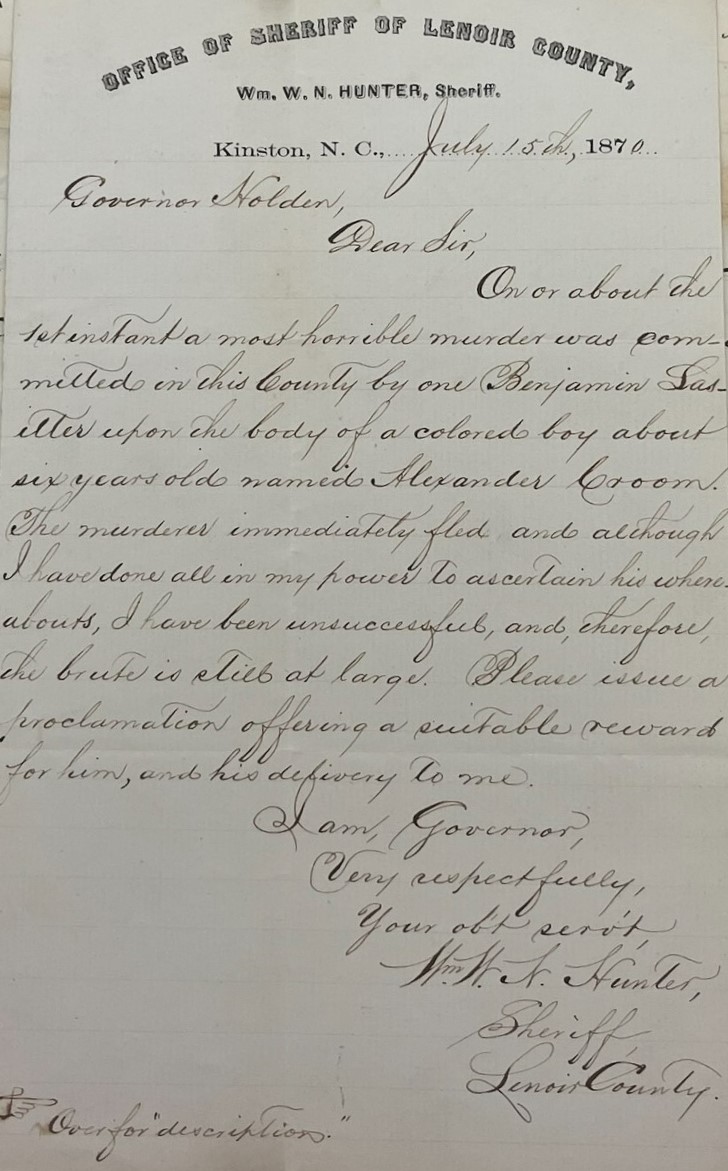 OFFICE OF SHERIFF OF LENOIR COUNTY,
Wm. W. N. HUNTER, Sheriff.
Kinston, N. C., July 15th, 1870.
Governor Holden,
Dear Sir,
On or about the
1st instant a most horrible murder was com-
mitted in this County by one Benjamin Las-
itter upon the body of a colored boy about
six years old named Alexander Croom.
The murderer immediately fled and although
I have done all in my power to ascertain his where-
abouts, I have been unsuccessful, and, therefore,
the brute is still at large. Please issue a
proclamation offering a suitable reward
for him, and his delivery to me.
I am, Governor,
Very respectfully,
Your ob't serv't,
Wm. W. N. Hunter,
Sheriff,
Lenoir County.
Over for "description."